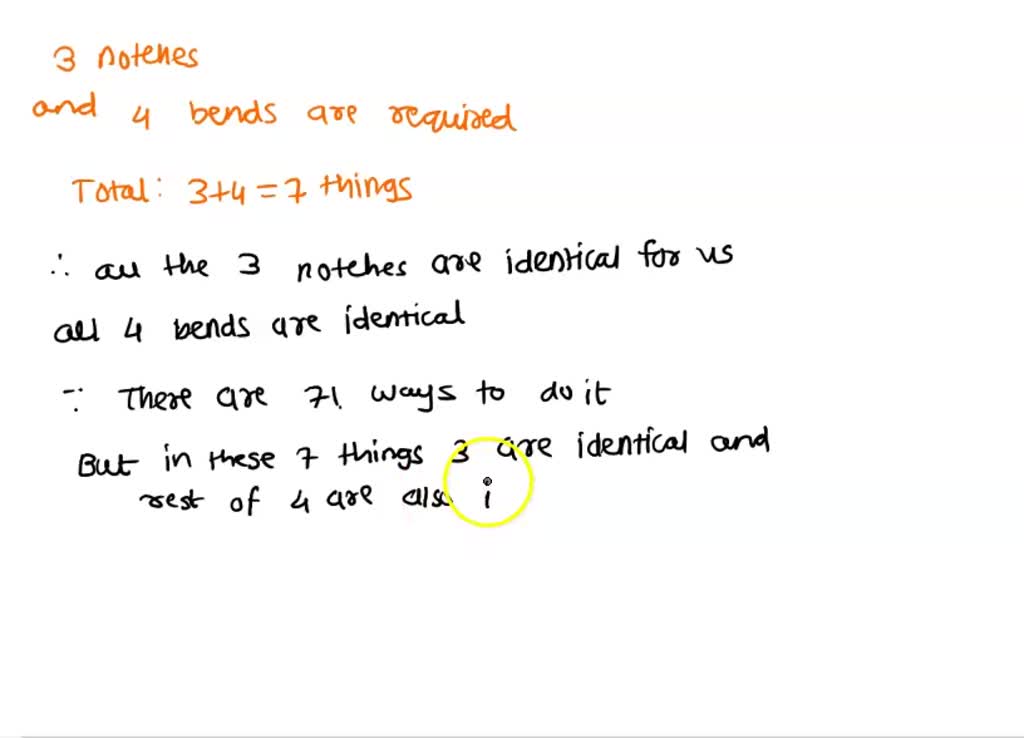 3 notches
and 4 bends are required
Total: 3+4=7 things
∴ all the 3 notches are identical for us
all 4 bends are identical
∵ There are 7! ways to do it
But in these 7 things 3 are identical and
rest of 4 are also i